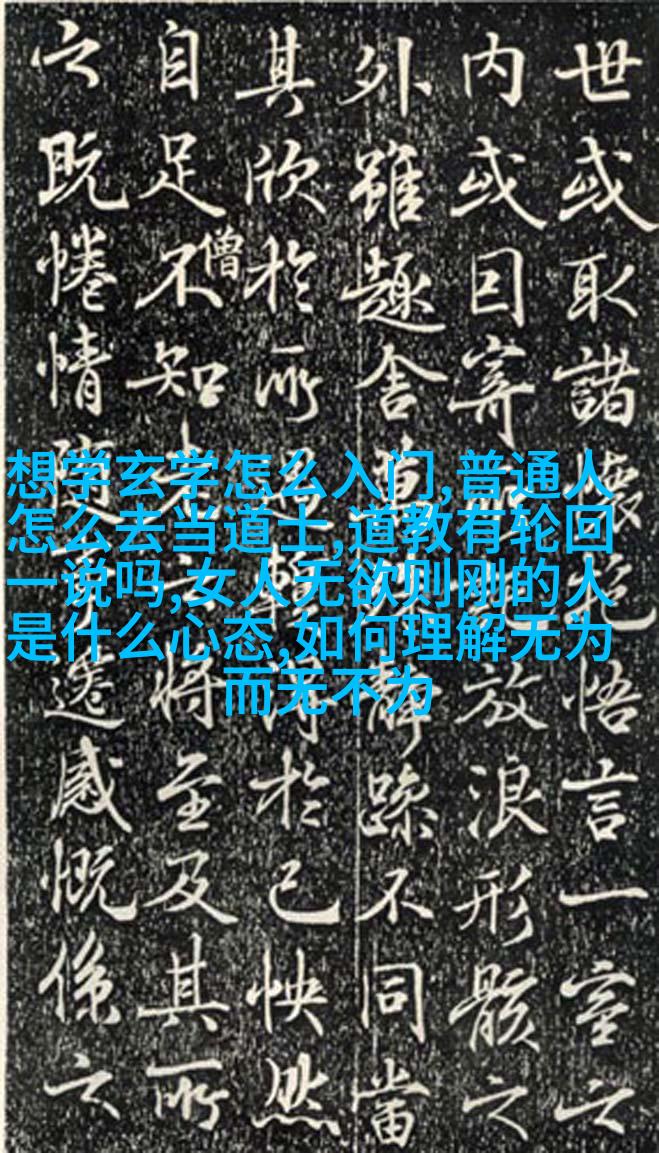 想学玄学怎么入门,普通人
怎么去当道士,道教有轮回
一说吗,女人无欲则刚的人
是什么心态,如何理解无为
而无不为
世或取諸懷抱悟言一室之
内或因寄所託放浪形骸之
外雖趣舍萬殊靜躁不同當
其欣於所遇蹔得於己怏然
自足不知老之將至及其所
僧
之既惓情隨事遷感慨係之